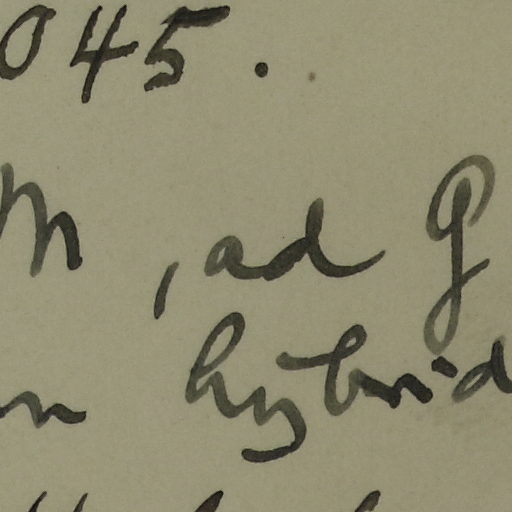 045.
M, ad G
n hybrid